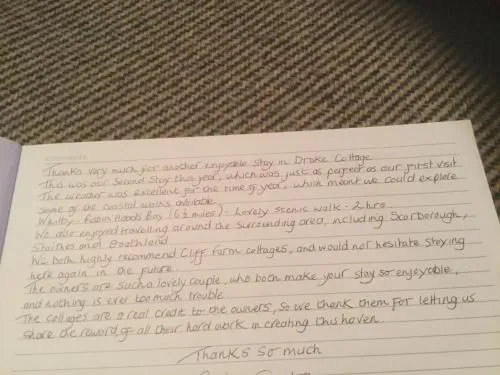 Comments
Thanks very much for another enjoyable stay in Drake Cottage
This was our second stay this year, which was just as perfect as our first visit
The weather was excellent for the time of year, which meant we could explore
some of the coastal walks available.
Whitby - Robin Hoods Bay (6½ miles) - Lovely scenic walk - 2 hrs
We also enjoyed travelling around the surrounding area, including Scarborough,
Staithes and Goathland
We both highly recommend Cliff Farm cottages, and would not hesitate staying
here again in the future
The owners are such a lovely couple, who both make your stay so enjoyable,
and nothing is ever too much trouble
The cottages are a real credit to the owners, so we thank them for letting us
share the reward of all their hard work in creating this haven
Thanks so much